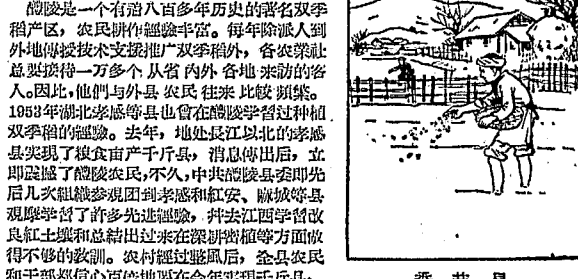 醴陵是一个有着八百多年历史的著名双季
稻产区，农民耕作經驗丰富。每年除派人到
外地傳授技术支援推广双季稻外，各农業社
总要接待一万多个从省内外各地来訪的客
人。因此，他們与外县农民往来比較頻繁。
1953年湖北孝感等县也曾在醴陵学習过种植
双季稻的經驗。去年，地处長江以北的孝感
县实現了粮食亩产千斤县，消息傳出后，立
即震撼了醴陵农民，不久，中共醴陵县委即先
后几次組織参观团到孝感和紅安、麻城等县
观摩学習了許多先进經驗，幷去江西学習改
良紅土壤和总結出过来在深耕密植等方面做
得不够的教訓。农村經过整風后，全县农民
和干部都信心百倍地要在今年实現千斤县，